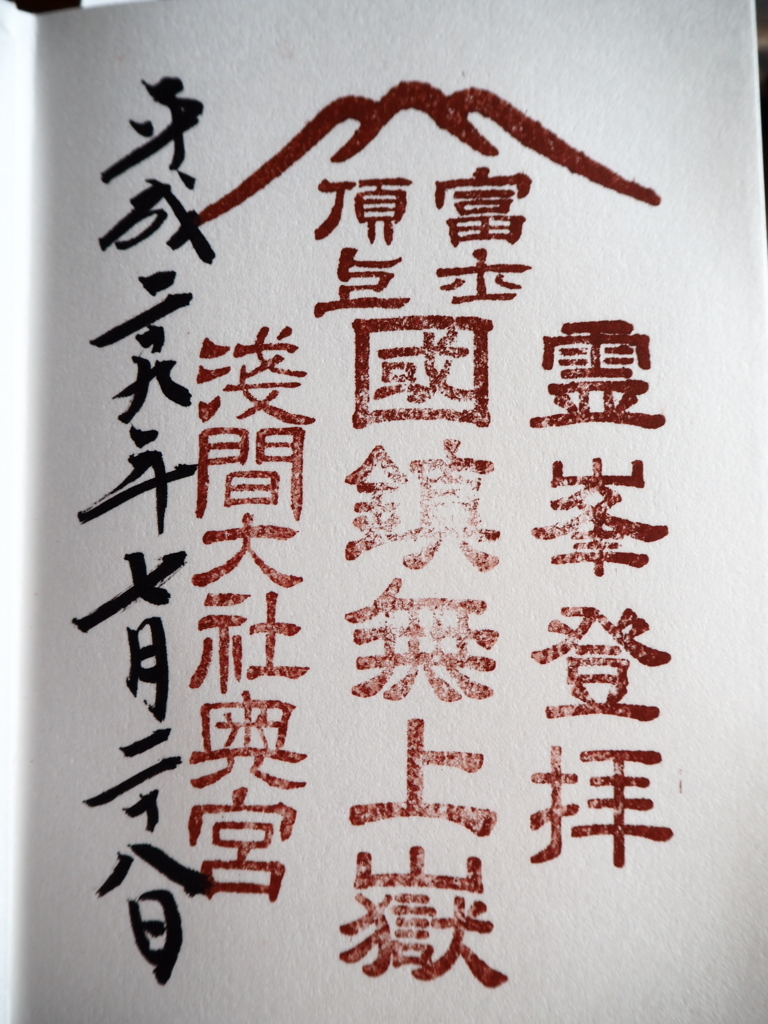 霊峯登拝
富士
頂上
國鎮無上嶽
淺間大社奥宮
平成二十九年七月二十八日